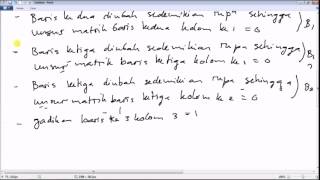 - Baris kedua diubah sedemikian rupa sehingga
unsur matrik baris kedua kolom ke 1 = 0 } B1
- Baris ketiga diubah sedemikian rupa sehingga
unsur matrik baris ketiga kolom ke 1 = 0 } B1
- Baris ketiga diubah sedemikian rupa sehingga
unsur matrik baris ketiga kolom ke 2 = 0 } B2
- jadikan baris ke 3 kolom 3 = 1